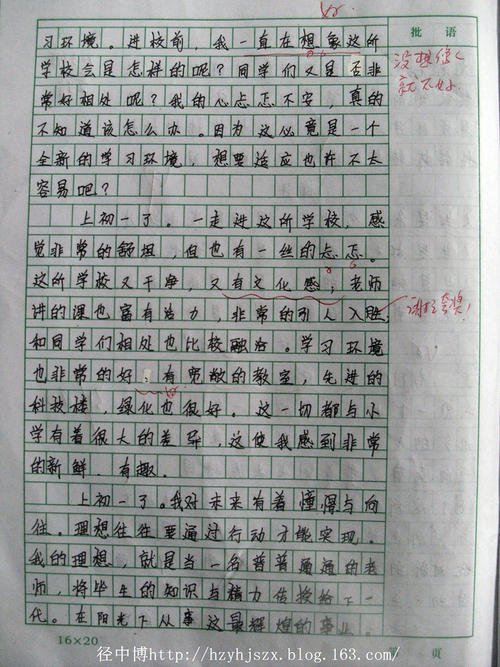 批语
习环境。进校前，我一直在想象这所
学校会是怎样的呢？同学们又是否非
常好相处呢？我的心忐忑不安，真的
不知道该怎么办。因为这必竟是一个
全新的学习环境，想要适应也许不太
容易吧？
上初一了。一走进这所学校，感
觉非常的舒坦，但也有一丝的忐忑。
这所学校又干净，又有文化感；老师
讲的课也富有活力，非常的引人入胜，
和同学们相处也比较融洽。学习环境
也非常的好：有宽敞的教室，先进的
科技楼，绿化也很好。这一切都与小
学有着很大的差异，这使我感到非常
的新鲜，有趣。
上初一了。我对未来有着憧憬与向
往。理想往往要通过行动才能实现。
我的理想，就是当一名普普通通的老
师，将毕生的知识与精力传授给下一
代。在阳光下从事这最辉煌的事业。
没想象
就不好
谢谢夸奖！
16×20
页
径中博http://hzyhjszx.blog.163.com/